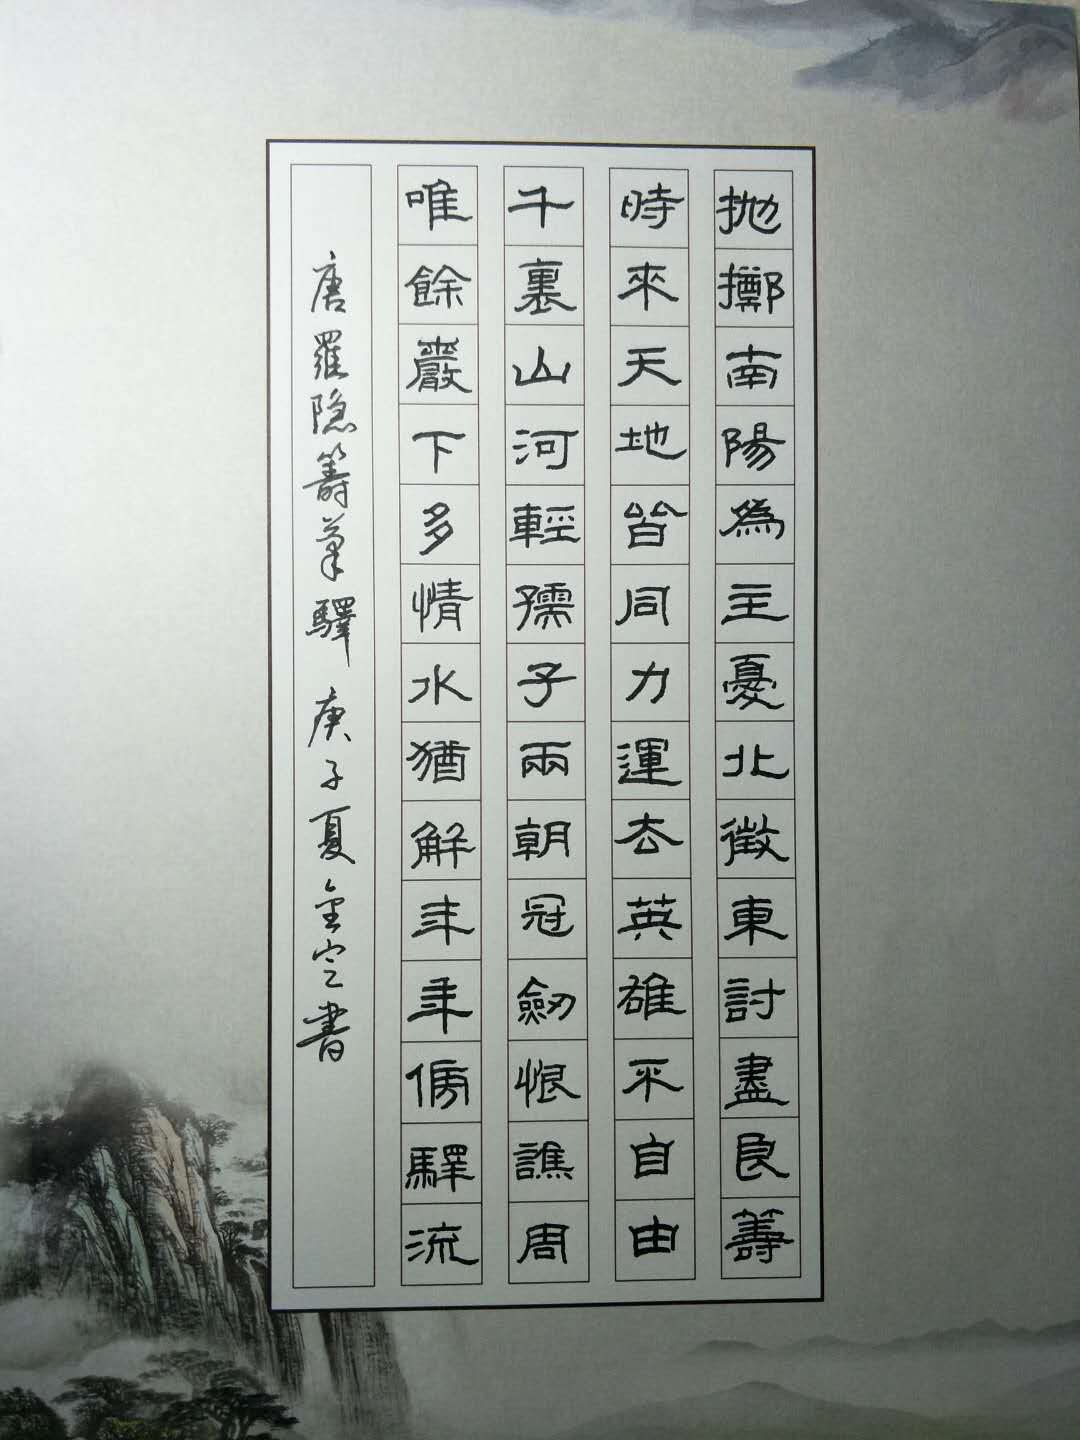 拋擲南陽為主憂北徵東討盡良籌
時來天地皆同力運去英雄不自由
千裏山河輕孺子兩朝冠劒恨譙周
唯餘巖下多情水猶解年年傍驛流
唐羅隐籌筆驛 庚子夏金定書